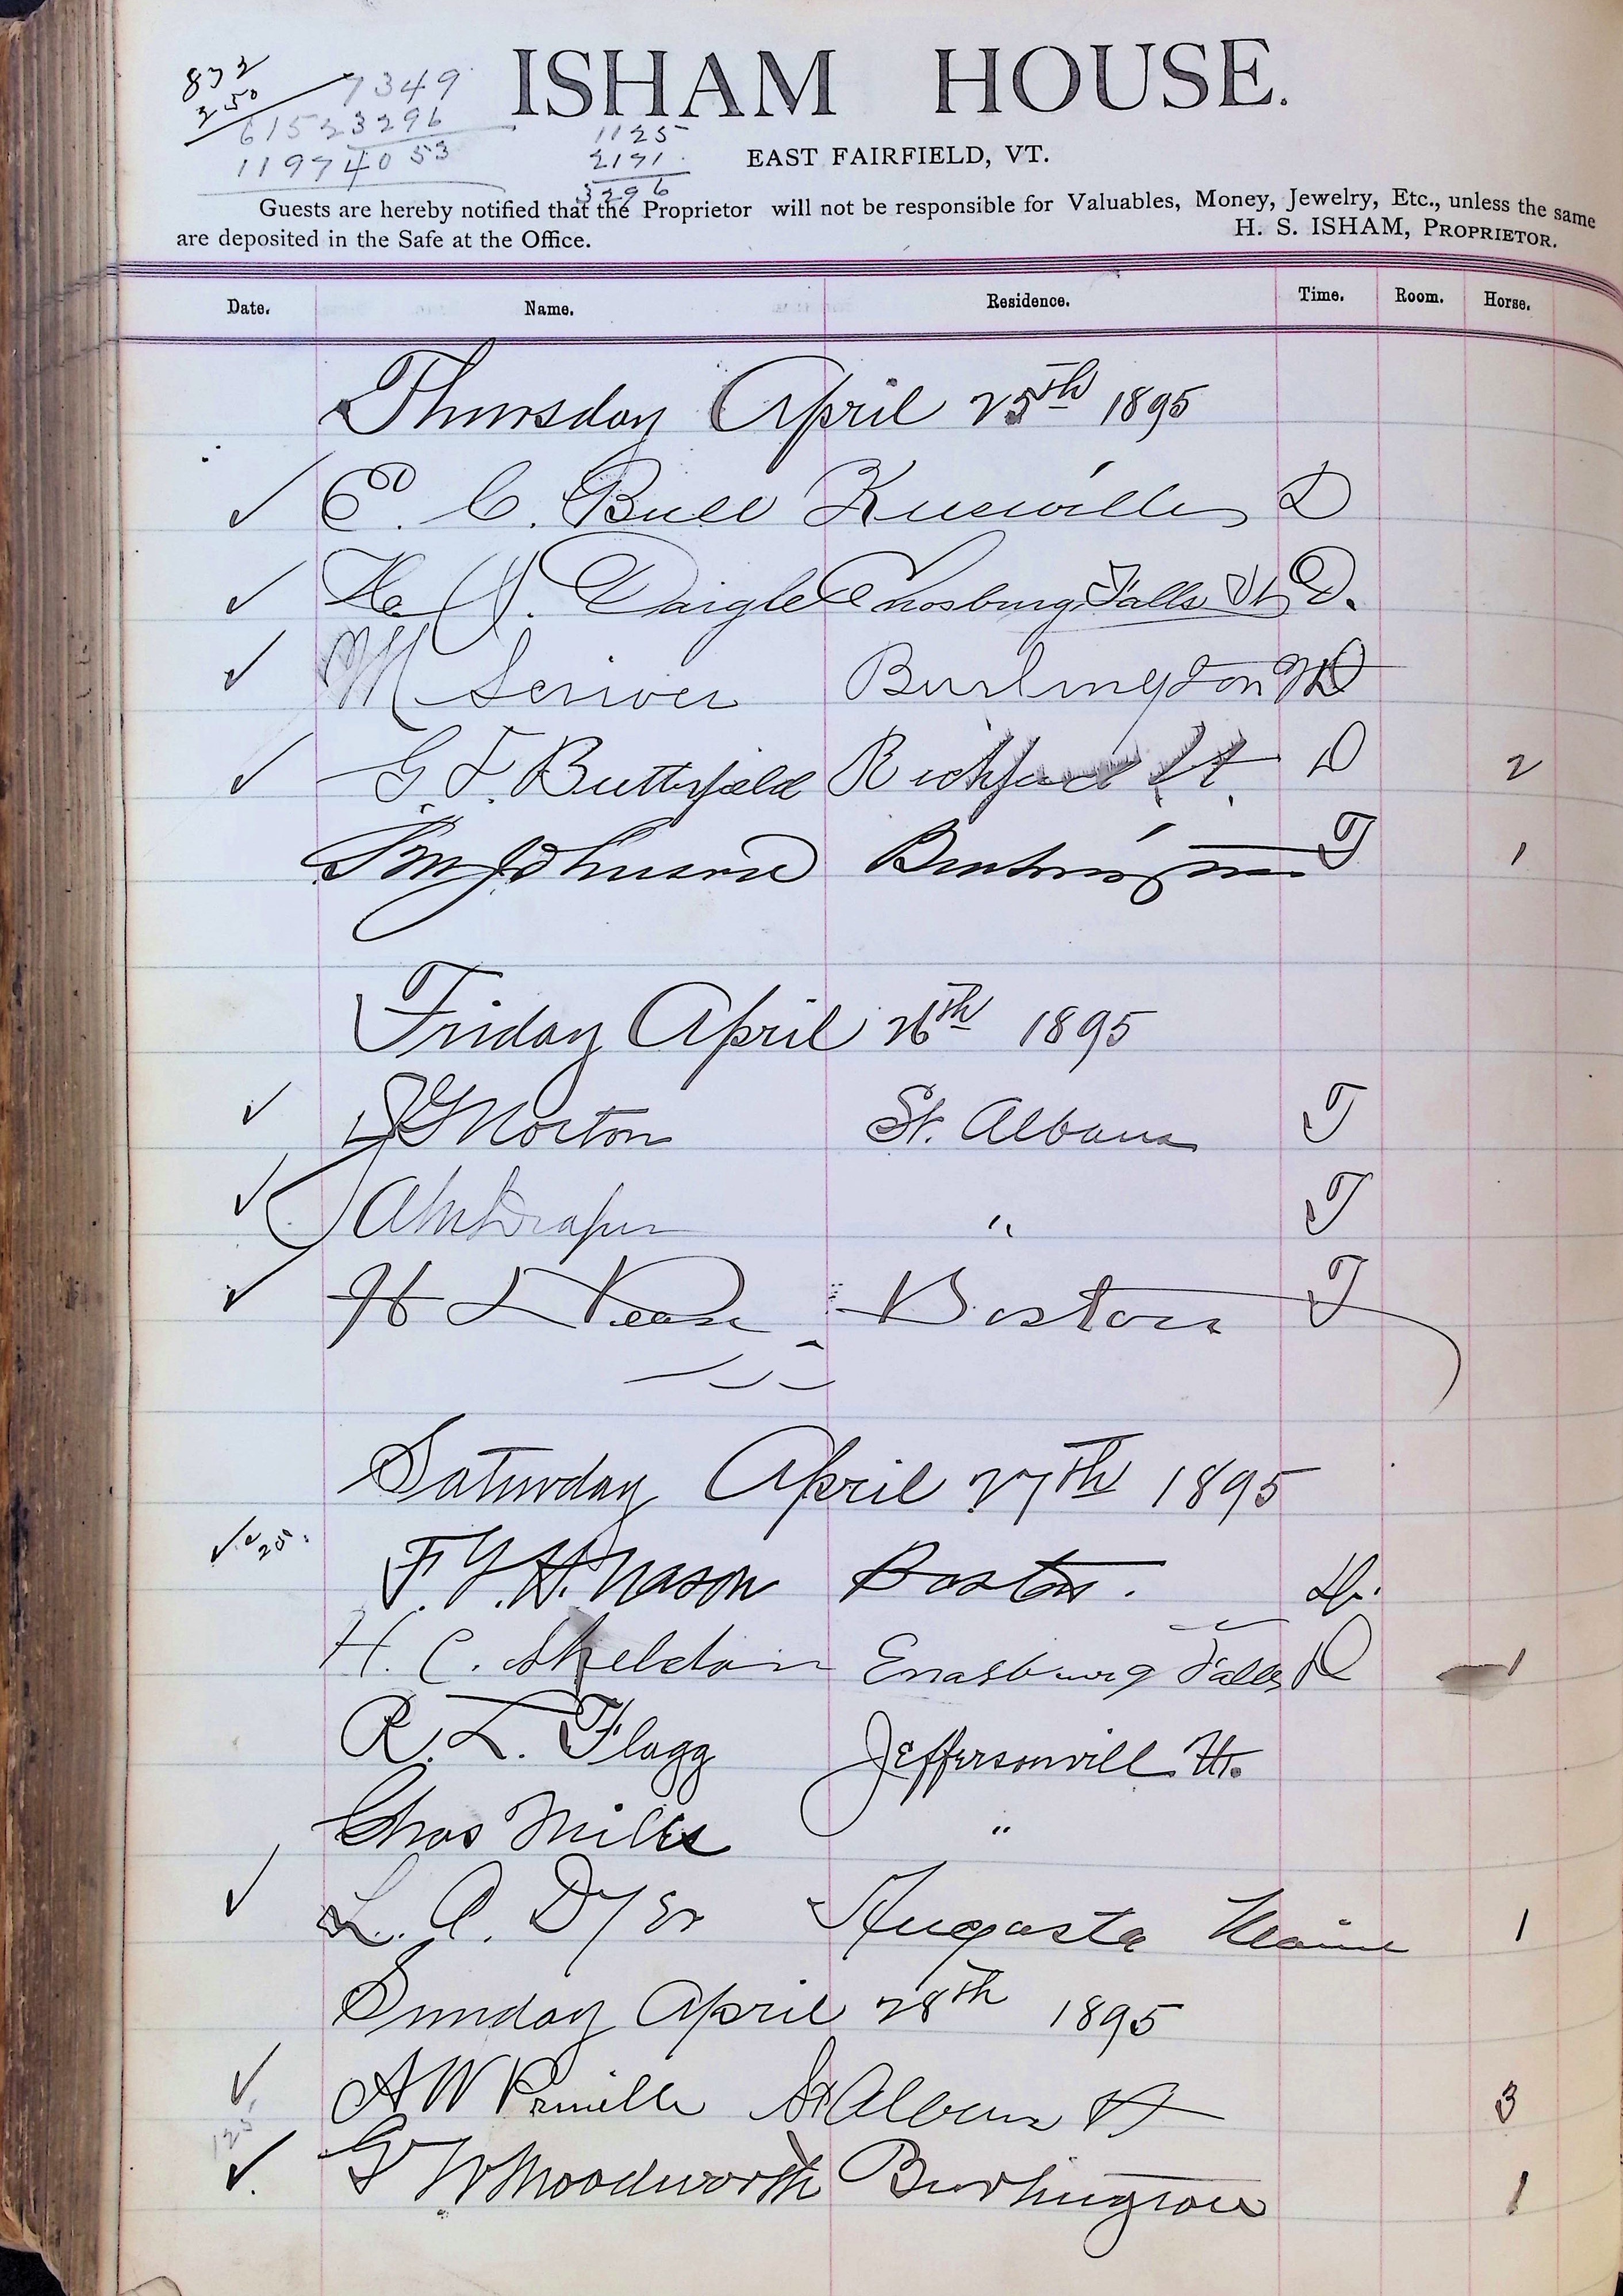 832
250
7349
61523296
11974053
1125
2171
3296
ISHAM HOUSE.
EAST FAIRFIELD, VT.
Guests are hereby notified that the Proprietor will not be responsible for Valuables, Money, Jewelry, Etc., unless the same
are deposited in the Safe at the Office.
H. S. ISHAM, PROPRIETOR.
Date. Name. Residence. Time. Room. Horse.
Thursday April 25th 1895
✓ E. C. Buell D
✓ Daigle Enosburg Falls Vt D.
✓ M Scriver Burlington Vt D
✓ G F. Butterfield Richford Vt. D 2
Johnson Burlington T 1
Friday April 26th 1895
✓ Norton St. Albans T
✓ Draper " T
✓ H L Pease Boston T
Saturday April 27th 1895
✓ F. Y. H. Nason Boston.
H. C. Sheldon Enasburg Falls D 1
R. L. Flagg Jeffersonvill Vt.
Chas Mills "
✓ L. A. Dyer Augusta Maine 1
Sunday April 28th 1895
✓ A W St Albans Vt 3
125
✓ G W Woodworth Burlington 1